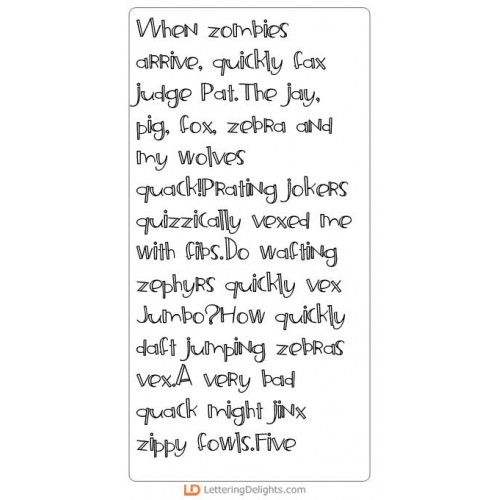 When zombies
arrive, quickly fax
judge Pat.The jay,
pig, fox, zebra and
my wolves
quack!Prating jokers
quizzically vexed me
with fibs.Do wafting
zephyrs quickly vex
Jumbo?How quickly
daft jumping zebras
vex.A very bad
quack might jinx
zippy fowls.Five
LD LetteringDelights.com